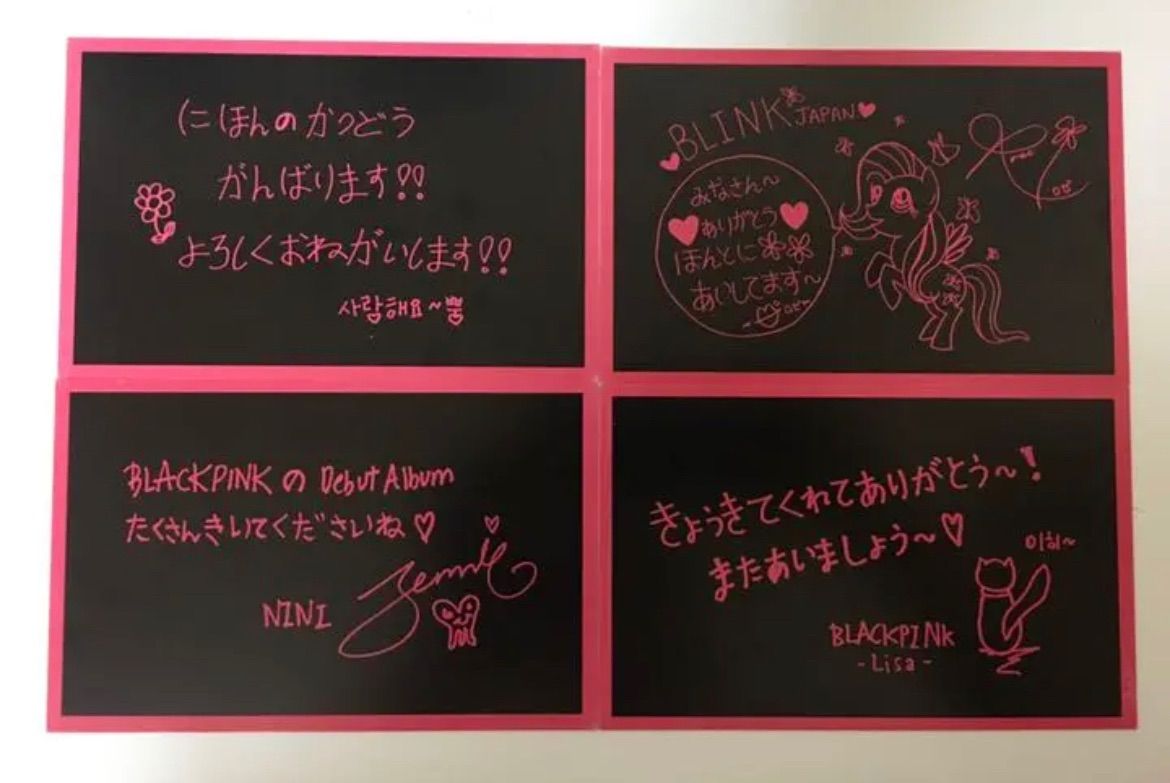 にほんのかつどう
がんばります!!
よろしくおねがいします!!
사랑해요~뿜
BLINK JAPAN
みなさん〜
ありがとう
ほんとに
あいしてます〜
ロゼ
BLACKPINK の Debut Album
たくさんきいてくださいね♡
NINI Jennie
きょうきてくれてありがとう〜!
またあいましょう〜♡
이히~
BLACKPINK
-Lisa-